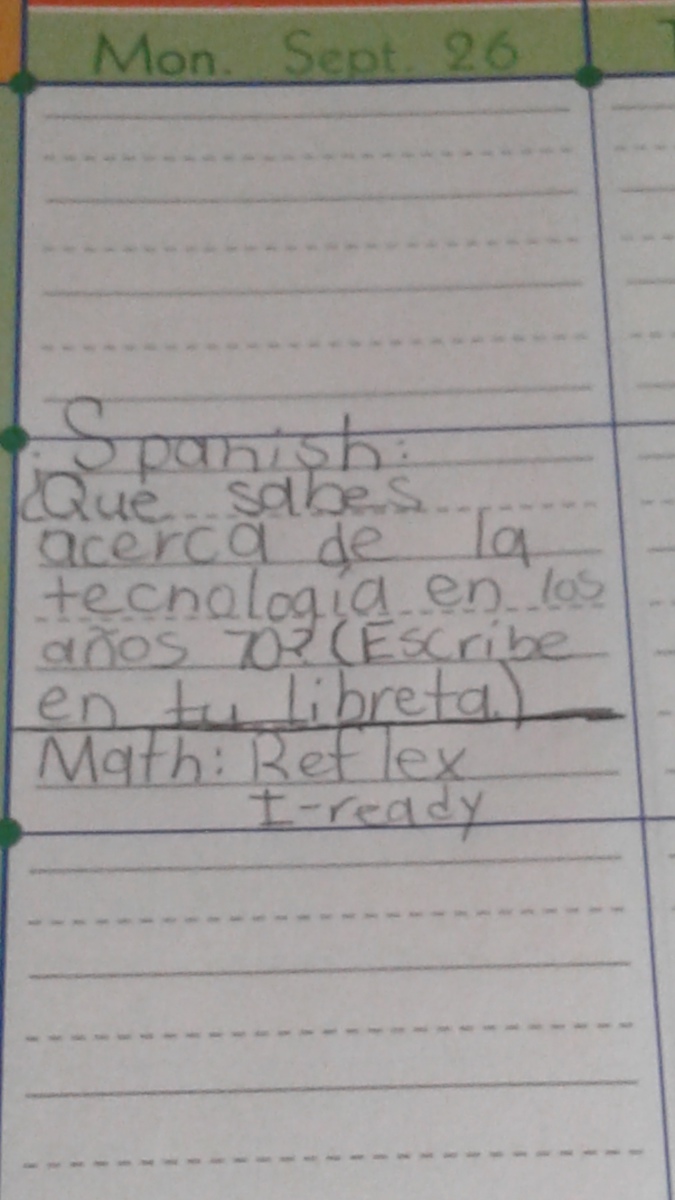 Mon. Sept. 26
Spanish:
¿Que sabes
acerca de la
tecnología en los
años 70? (Escribe
en tu libreta.)
Math: Reflex
I-ready